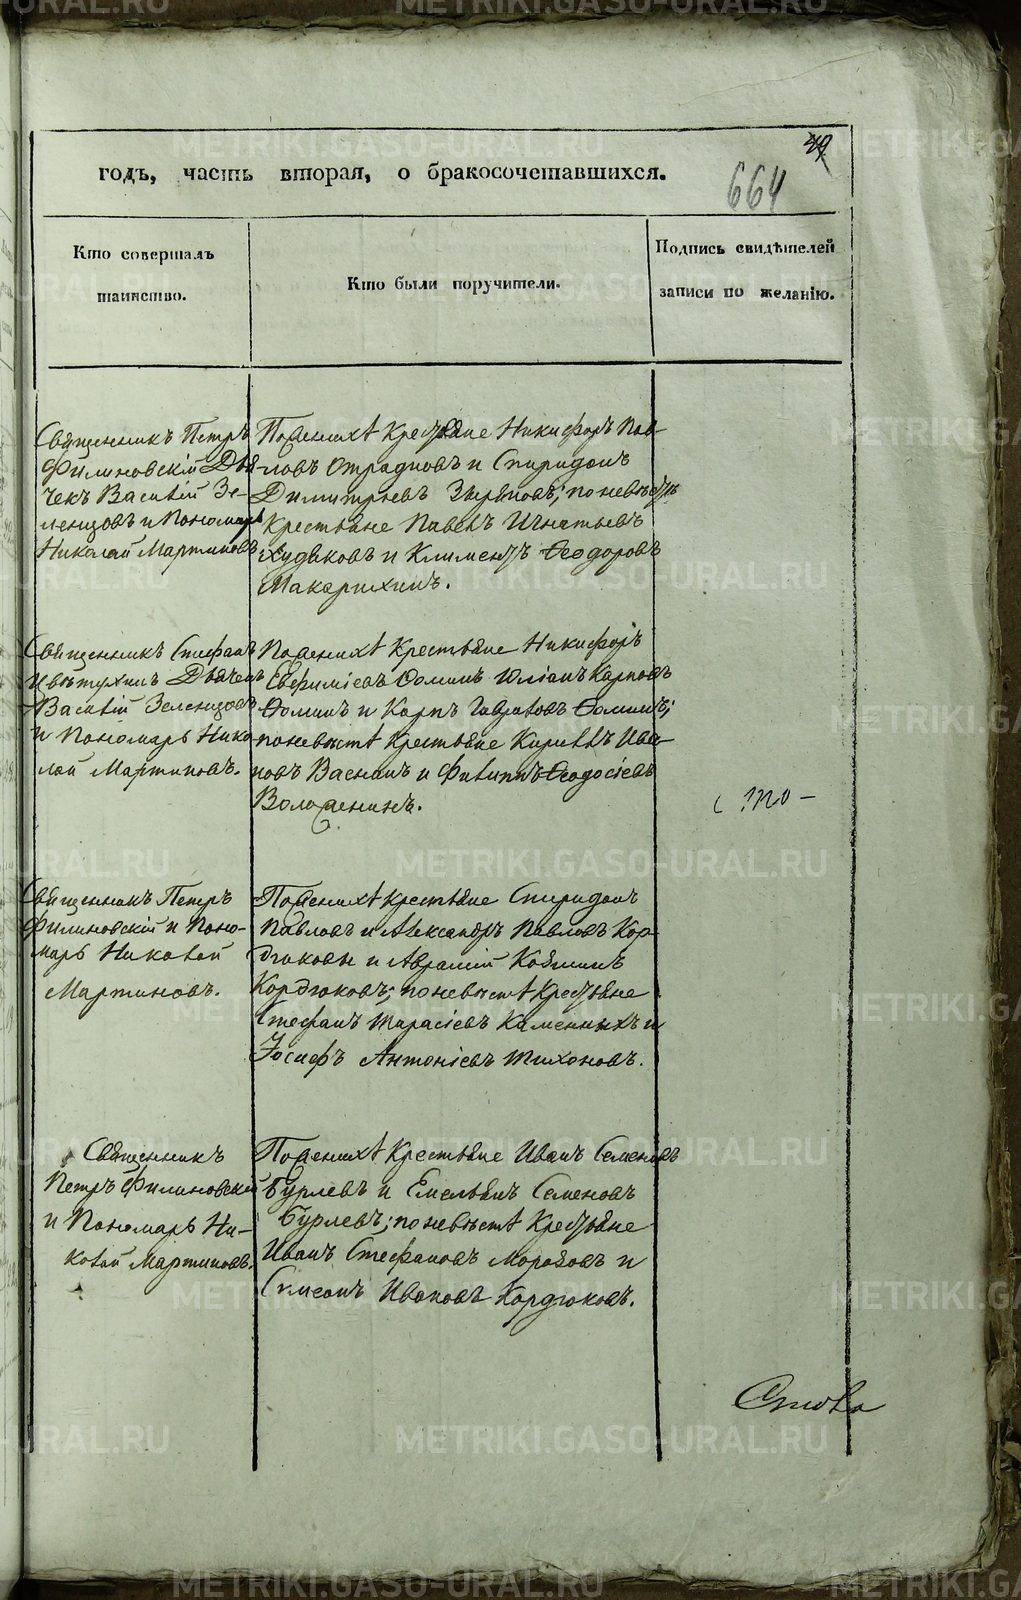 METRIKI.GASO-URAL.RU
49
годъ, часть вторая, о бракосочетавшихся.
664
Кто совершалъ
таинство.
Кто были поручители.
Подпись свидѣтелей
записи по желанію.
Священникъ Петръ
Филиновскій Дья
чекъ Василій Зе-
ленцовъ и Пономарь
Николай Мартиновъ
По женихѣ Крестьяне Никифоръ Пав-
ловъ Отрадновъ и Спиридонъ
Димитріевъ Звѣревъ; по невѣстѣ
Крестьяне Павелъ Игнатьевъ
Худяковъ и Климентъ Ѳеодоровъ
Макарихинъ.
Священникъ Стефанъ
Дьячекъ
Василій Зеленцовъ
и Пономарь Нико-
лай Мартиновъ.
По женихѣ Крестьяне Никифоръ
Евфиміевъ Ѳоминъ Юліанъ Карповъ
Ѳоминъ и Карпъ Гавриловъ Ѳоминъ;
по невѣстѣ Крестьяне Кириллъ Ива-
новъ Васнинъ и Филиппъ Ѳеодосіевъ
Воложенинъ.
Священникъ Петръ
Филиновскій и Поно-
марь Николай
Мартиновъ.
По женихѣ крестьяне Спиридонъ
Павловъ и Александръ Павловъ Кор-
дюковы и Аврамій Козминъ
Кордюковъ; по невѣстѣ Крестьяне
Стефанъ Тарасіевъ Каменныхъ и
Іосифъ Антоніевъ Тихоновъ.
Священникъ
Петръ Филиновскій
и Пономарь Ни-
колай Мартиновъ.
По женихѣ Крестьяне Иванъ Семеновъ
Бурлевъ и Емельянъ Семеновъ
Бурлевъ; по невѣстѣ Крестьяне
Иванъ Стефановъ Морозовъ и
Симеонъ Ивановъ Кордюковъ.